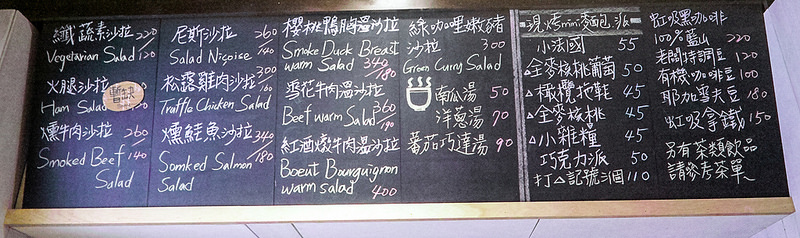 纖蔬素沙拉 220
Vegetarian Salad 120
火腿沙拉
Ham Salad
暫缺
燻牛肉沙拉 260
Smoked Beef 140
Salad
尼斯沙拉 260
Salad Nisoise 140
松露雞肉沙拉 300
Truffle Chicken Salad 160
燻鮭魚沙拉 340
Somked Salmon 180
Salad
櫻桃鴨胸溫沙拉
Smoke Duck Breast
warm Salad 340/180
雪花牛肉溫沙拉
Beef warm Salad 360/190
紅酒燉牛肉溫沙拉
Boeut Bourguignon
warm salad 400
綠咖哩嫩豬
沙拉 300
Green Curry Salad
南瓜湯 50
洋蔥湯 70
蕃茄巧達湯 90
現烤mini麵包、派
小法國 55
△全麥核桃葡萄 50
△橄欖拖鞋 45
△全麥核桃 45
△小雜糧 45
巧克力派 50
打△記號3個110
虹吸黑咖啡
100%藍山 220
老闆特調豆 120
有機咖啡豆 100
耶加雪夫豆 180
虹吸拿鐵 150
另有茶類飲品
請參考茶單